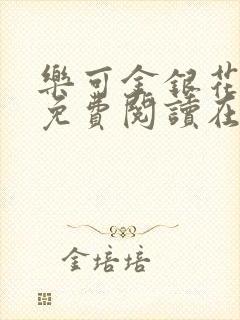 樂可金銀花
免費閱讀在
金培培